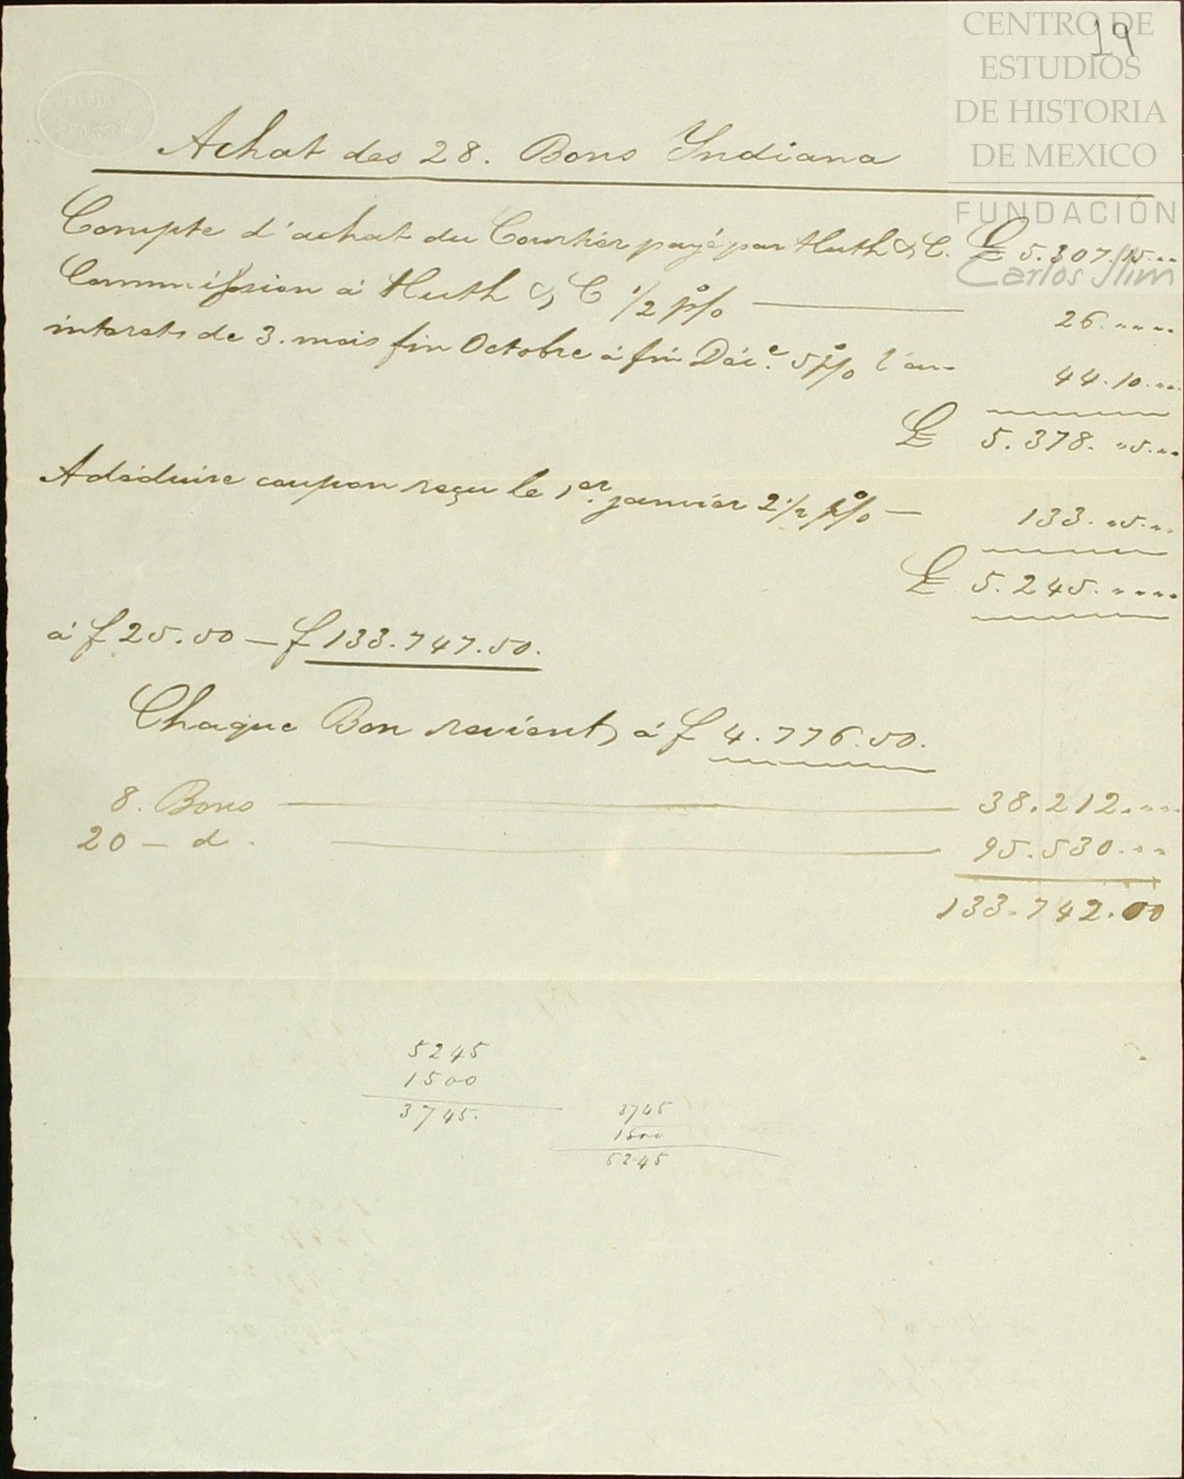 CENTRO DE
ESTUDIOS
DE HISTORIA
DE MEXICO
FUNDACIÓN
Carlos Slim
19
Achat des 28. Bons Indiana
Compte d'achat du Courtier payé par Huth & C. £ 5.307.15.""
Commission à Huth & C 1/2 p% — 26.""""
interets de 3. mois fin Octobre à fin Déc.e 5 p% l'an 44.10.""
£ 5.378."5.""
A déduire coupon reçu le 1er. janvier 2 1/2 p% — 133."5.""
£ 5.245.""""
à f 25.50 — f 133.747.50.
Chaque Bon revient à f 4.776.50.
8. Bons — 38.212.""
20 — d. — 95.530.""
133.742.00
5245
1500
3745.
3745
1500
5245